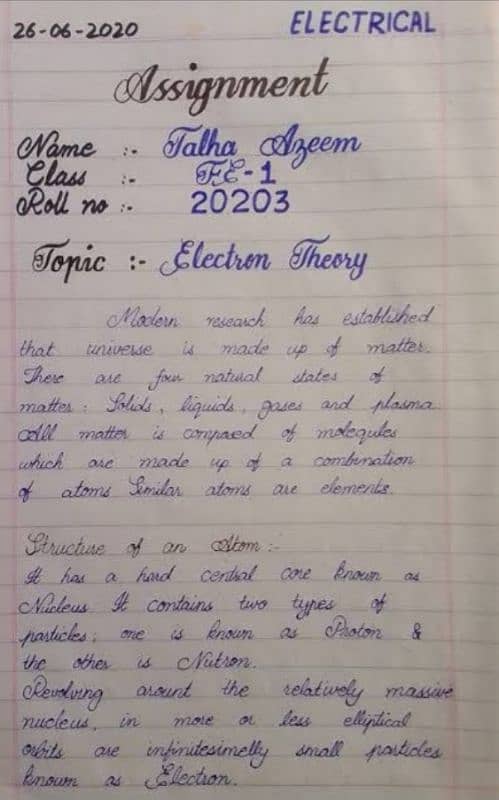 26-06-2020 ELECTRICAL
Assignment
Name :- Talha Azeem
Class :- FE-1
Roll no :- 20203
Topic :- Electron Theory
Modern research has established
that universe is made up of matter.
There are four natural states of
matter : Solids, liquids, gases and plasma
All matter is composed of molequles
which are made up of a combination
of atoms Similar atoms are elements.
Structure of an Atom :-
It has a hard central core known as
Nucleus. It contains two types of
particles; one is known as Proton &
the other is Nutron.
Revolving arount the relatively massive
nucleus, in more or less elliptical
orbits are infinitesimelly small particles
known as Electron.